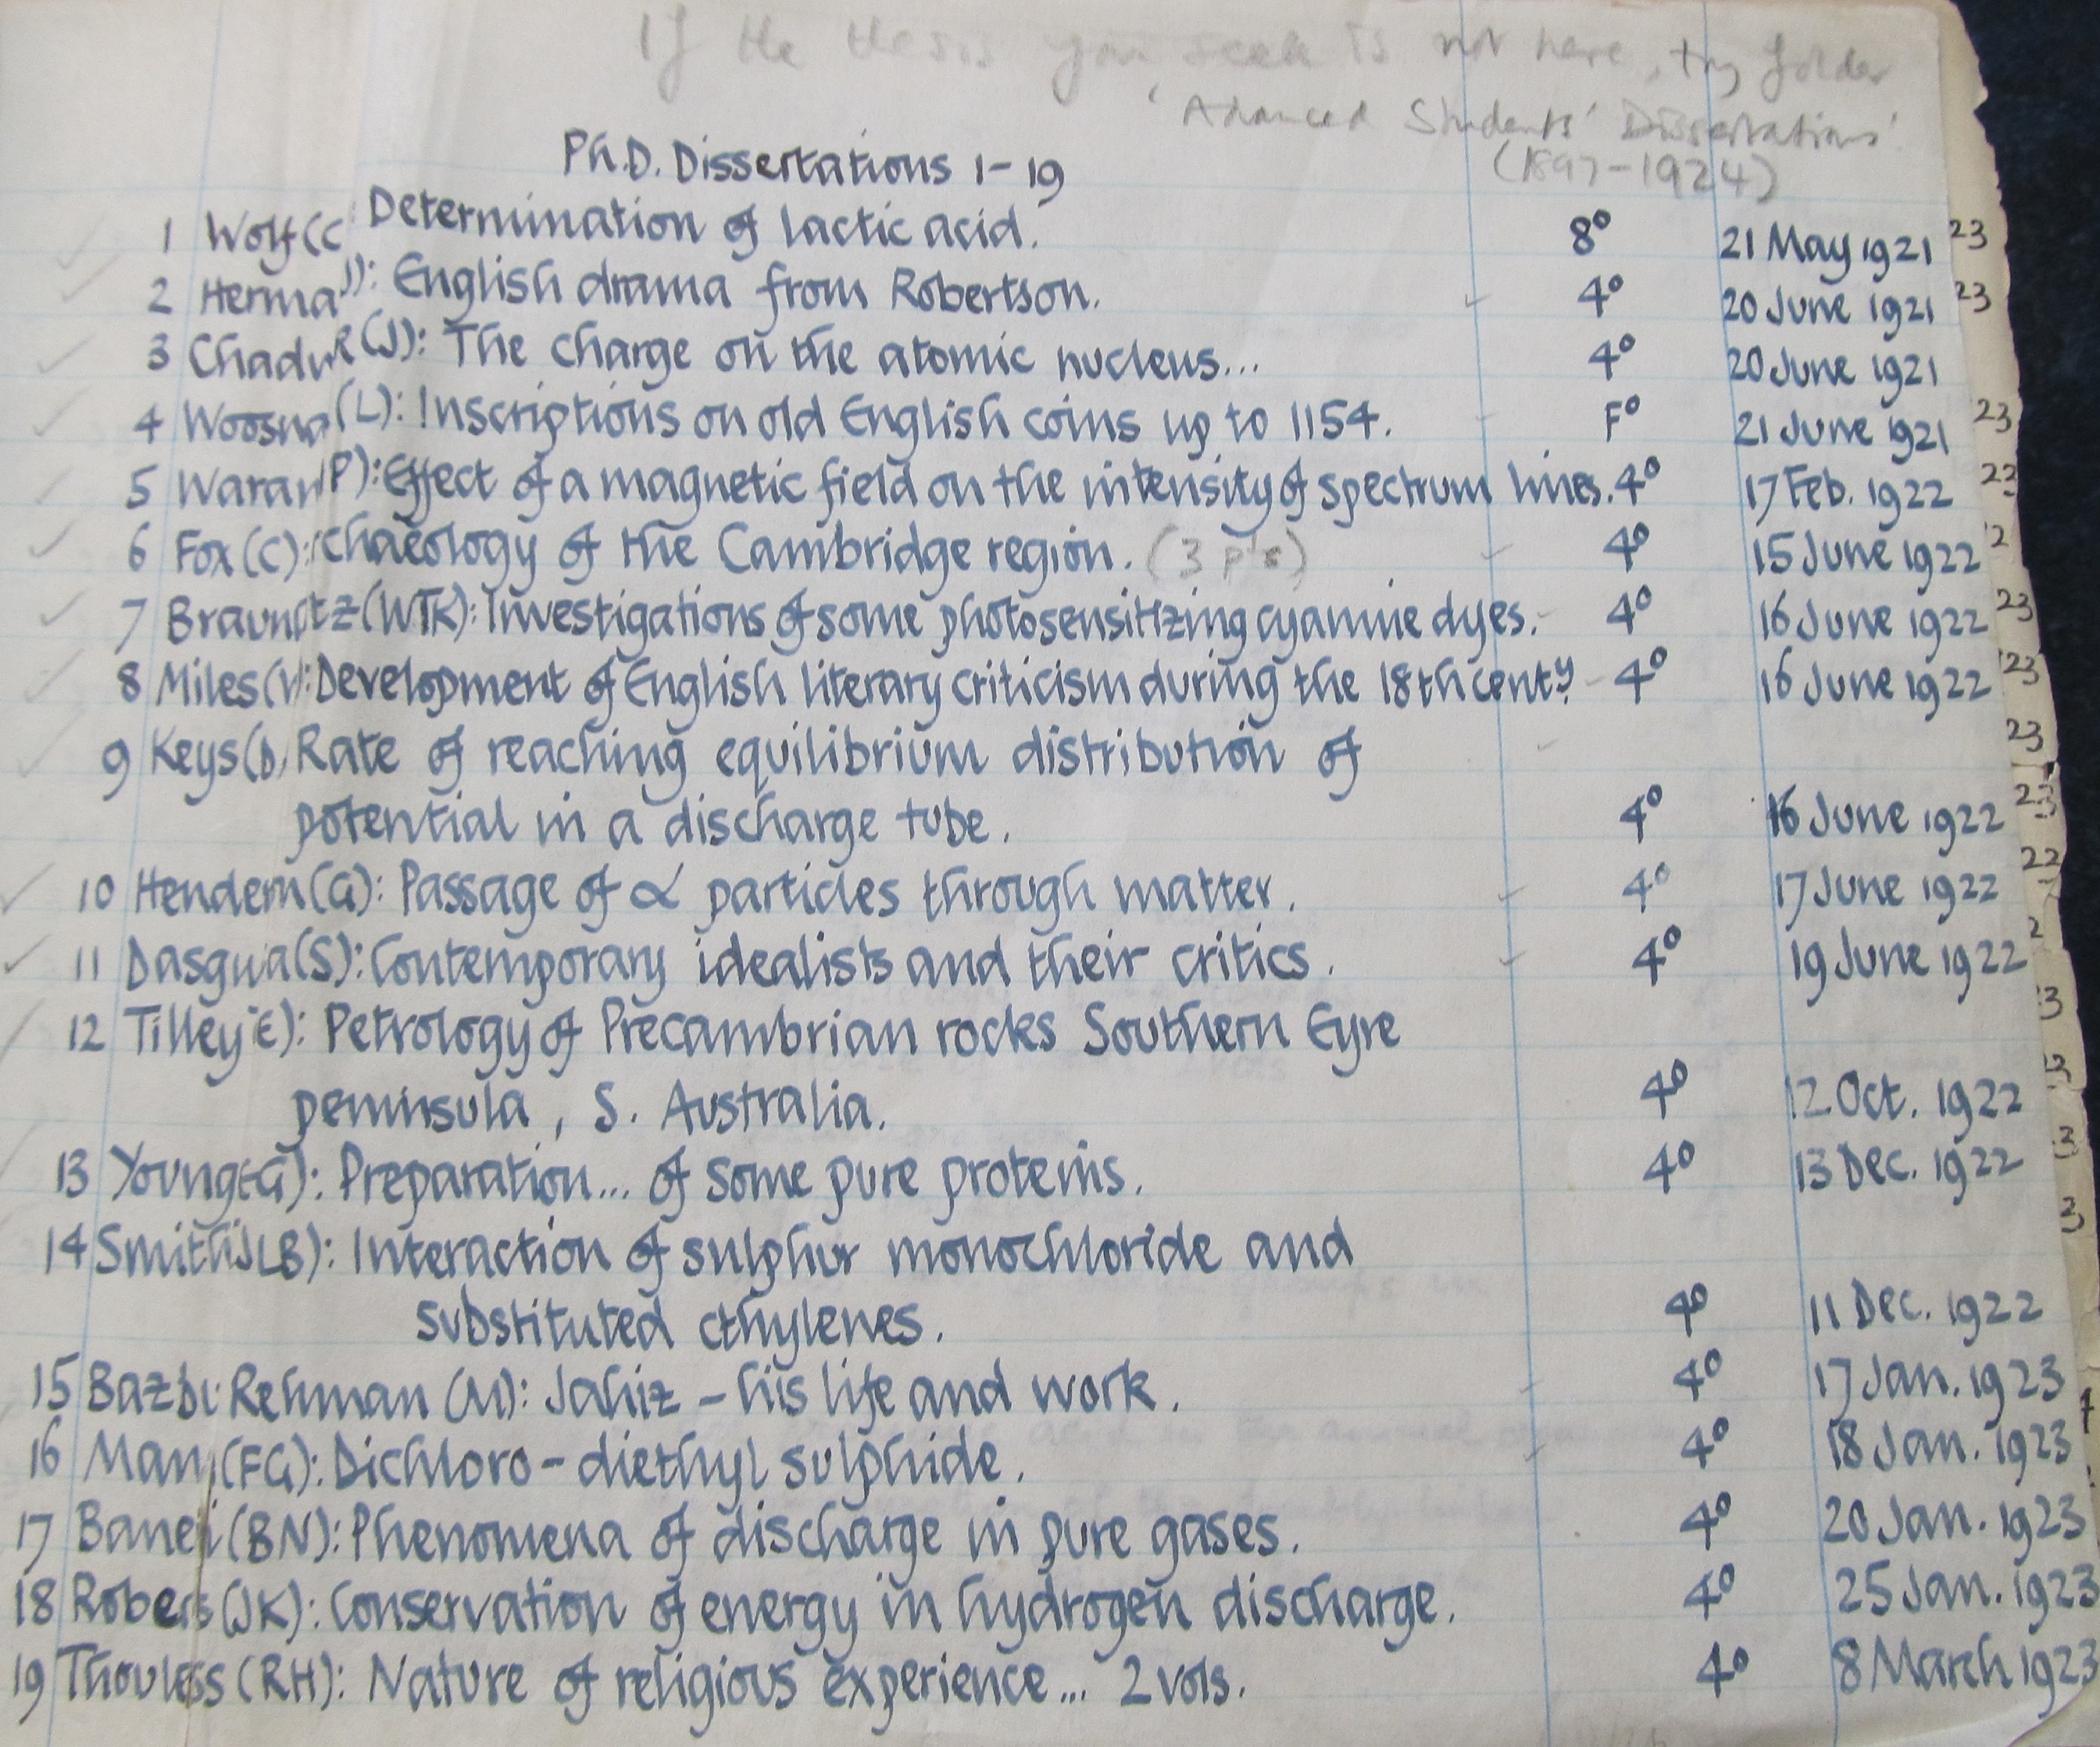 If the thesis you seek is not here, try folder
'Advanced Students' Dissertations'
(1897-1924)
Ph.D. Dissertations 1-19
1 Wolf(C Determination of lactic acid. 8° 21 May 1921 23
2 Herma J): English drama from Robertson. 4° 20 June 1921 23
3 Chadw R(J): The charge on the atomic nucleus... 4° 20 June 1921
4 Woosna (L): Inscriptions on old English coins up to 1154. F° 21 June 1921 23
5 Waran P): Effect of a magnetic field on the intensity of spectrum lines. 4° 17 Feb. 1922 23
6 Fox(C): rchaeology of the Cambridge region. (3 pts) 4° 15 June 1922 2
7 Braunltz(WTK): Investigations of some photosensitizing cyanine dyes. 4° 16 June 1922 23
8 Miles( : Development of English literary criticism during the 18th centy. 4° 16 June 1922 23
9 Keys(D Rate of reaching equilibrium distribution of 23
potential in a discharge tube. 4° 16 June 1922 23
10 Hendern(G): Passage of α particles through matter. 4° 17 June 1922 22
11 Dasgua(S): Contemporary idealists and their critics. 4° 19 June 1922 2
12 Tilley E): Petrology of Precambrian rocks Southern Eyre 3
peninsula, S. Australia. 4° 12 Oct. 1922 3
13 Young(G): Preparation... of some pure proteins. 4° 13 Dec. 1922 3
14 Smith JLB): Interaction of sulphur monochloride and 3
substituted ethylenes. 4° 11 Dec. 1922
15 Bazl Rehman (M): Jahiz - his life and work. 4° 17 Jan. 1923
16 Man (FG): Dichloro-diethyl sulphide. 4° 18 Jan. 1923
17 Baneji(BN): Phenomena of discharge in pure gases. 4° 20 Jan. 1923
18 Robers(JK): Conservation of energy in hydrogen discharge. 4° 25 Jan. 1923
19 Thouless (RH): Nature of religious experience... 2 vols. 4° 8 March 1923